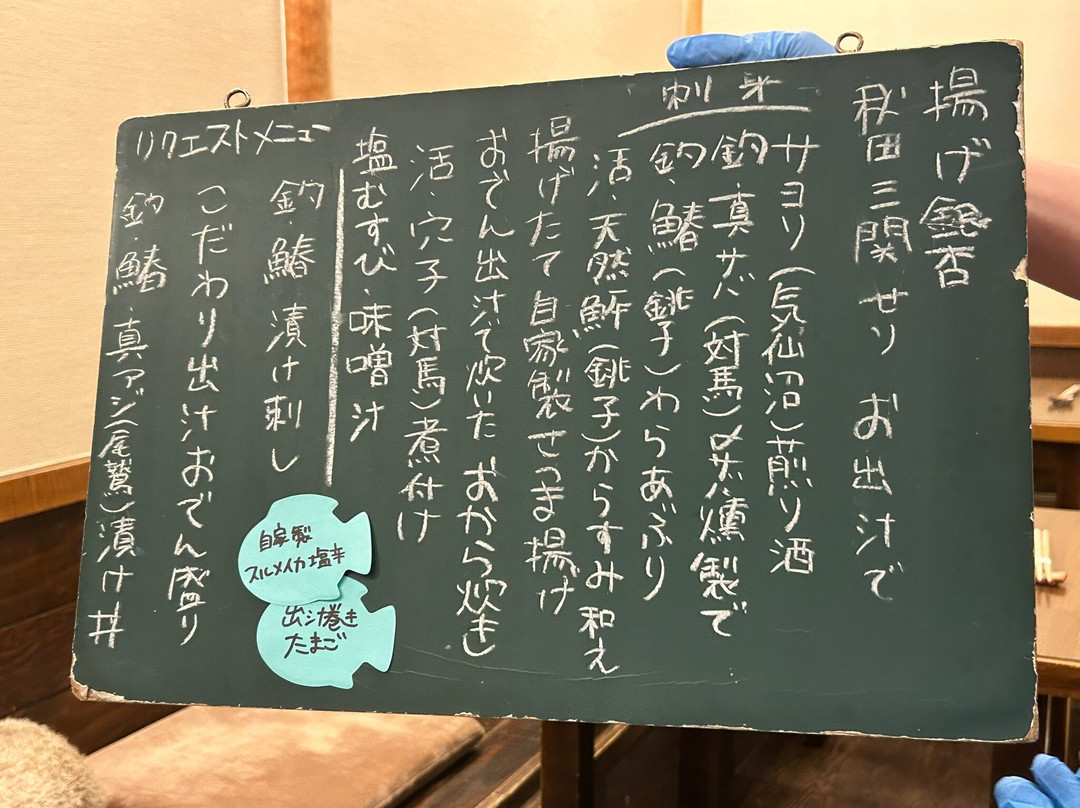 揚げ銀杏
秋田三関せり お出汁で
刺身
サヨリ(気仙沼)煎り酒
釣・真サバ(対馬)〆サバ燻製で
釣・鰆(銚子)わらあぶり
活・天然鮃(銚子)からすみ和え
揚げたて自家製さつま揚げ
おでん出汁で炊いた おから炊き
活・穴子(対馬)煮付け
塩むすび・味噌汁
リクエストメニュー
釣・鰆 漬け刺し
こだわり出汁おでん盛り
釣・鰆・真アジ(尾鷲)漬け丼
自家製
スルメイカ塩辛
出シ巻き
たまご